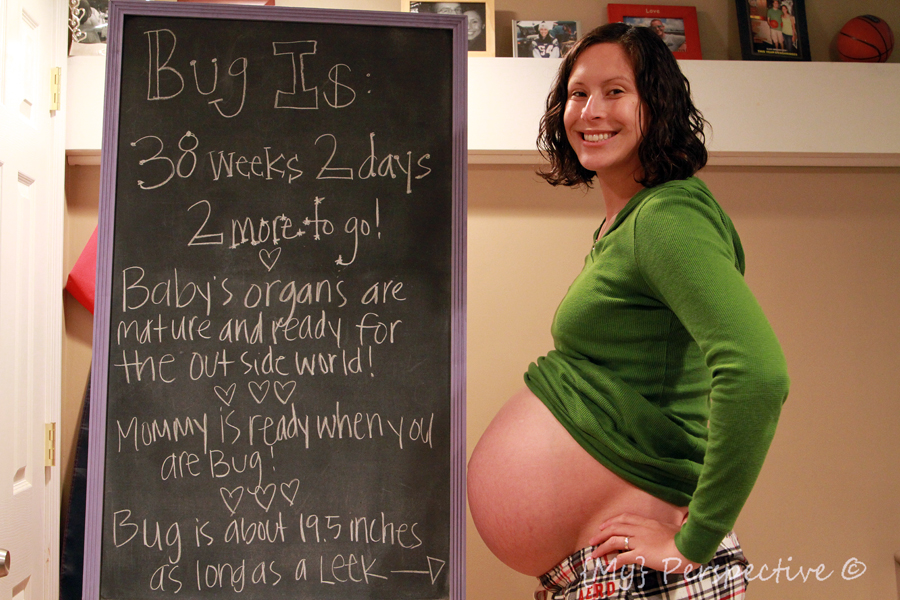 Bug Is:
38 weeks 2 days
2 more to go!
Baby's organs are
mature and ready for
the outside world!
Mommy is ready when you
are Bug!
Bug is about 19.5 inches
as long as a Leek
Love
AERO
{My} Perspective ©